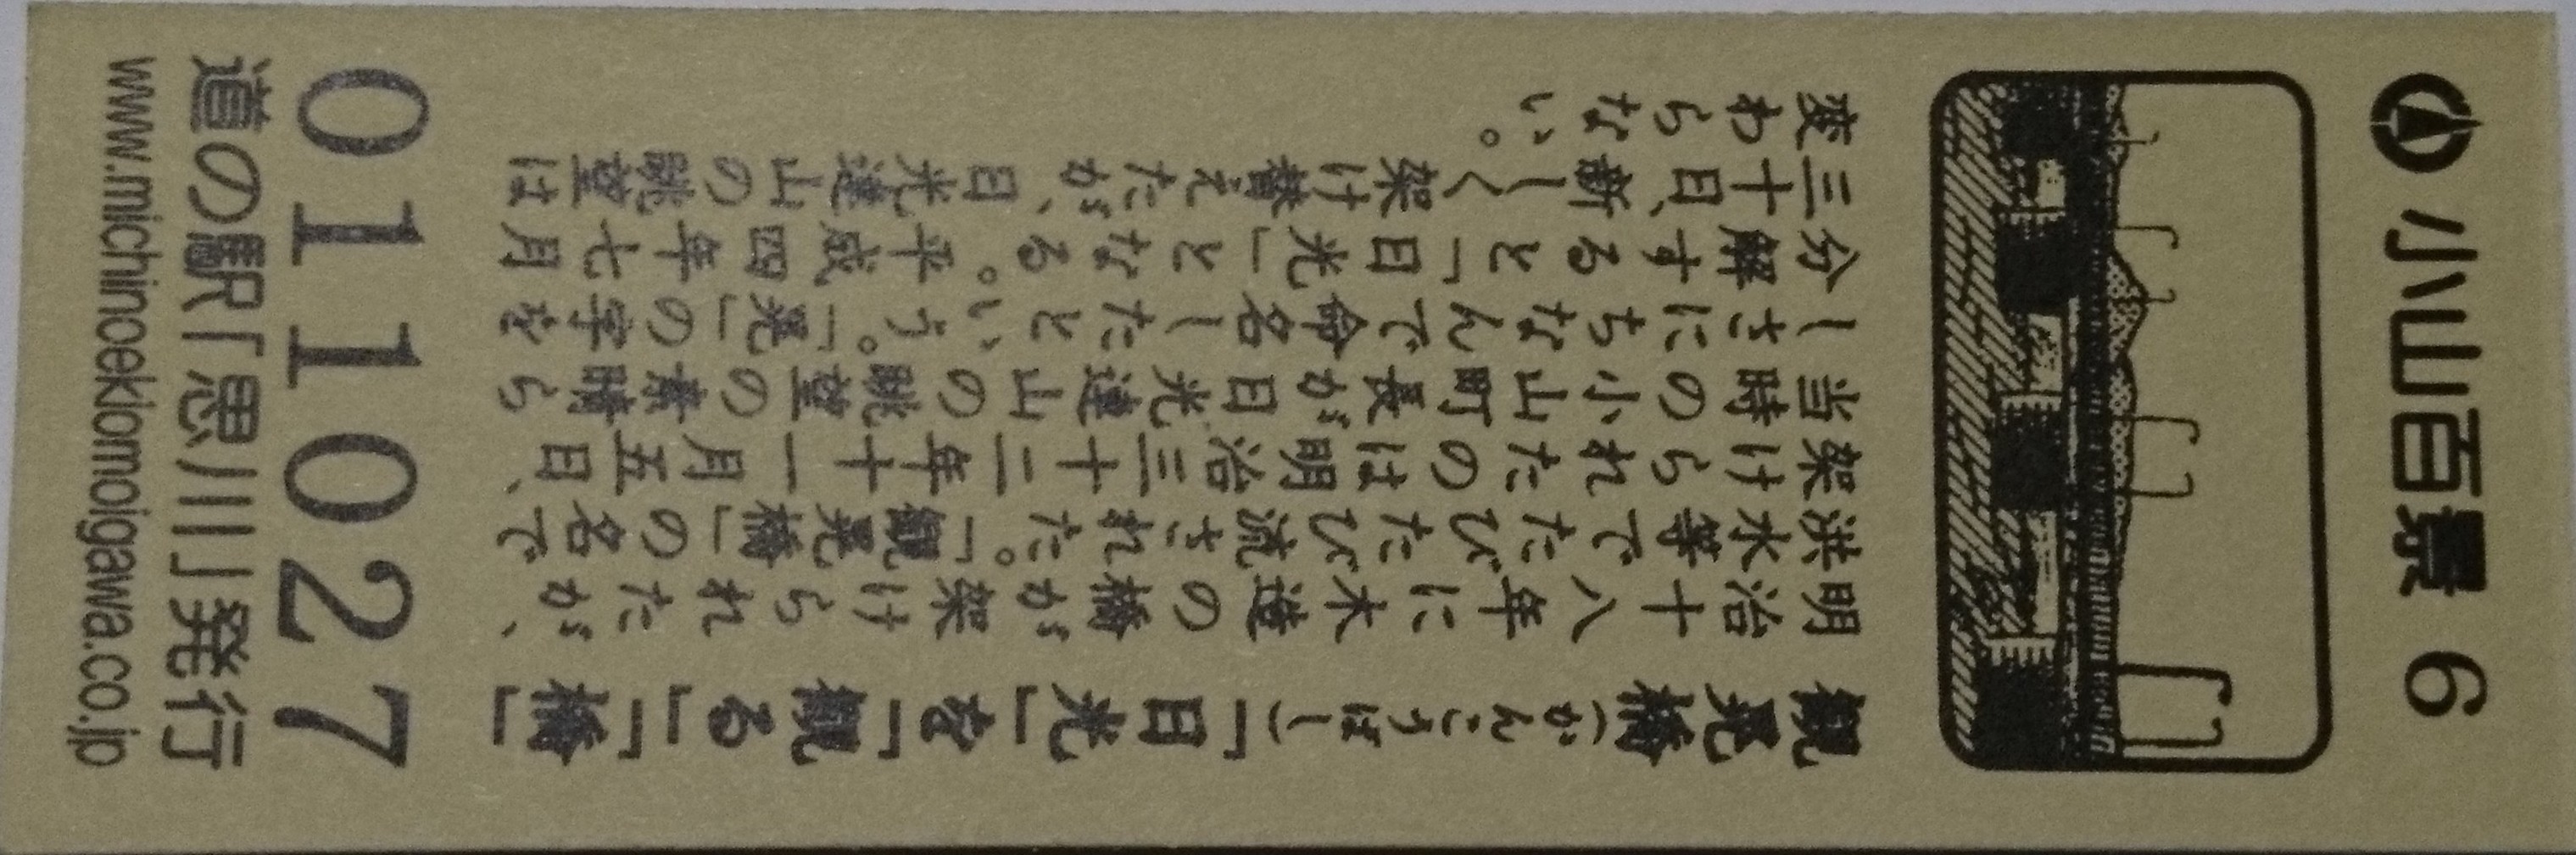 小山百景 6
観晃橋(かんこうばし)「日光」を「観る」「橋」
明治十八年に木造の橋が架けられたが、
洪水等でたびたび流された。「観晃橋」の名で
架けられたのは明治三十二年十一月五日、
当時の小山町長が日光連山の眺望の素晴ら
しさにちなんで命名したという。「晃」の字を
分解すると「日光」となる。平成四年七月
三十日、新しく架け替えたが、日光連山の眺望は
変わらない。
011027
道の駅「思川」発行
www.michinoekiomoigawa.co.jp